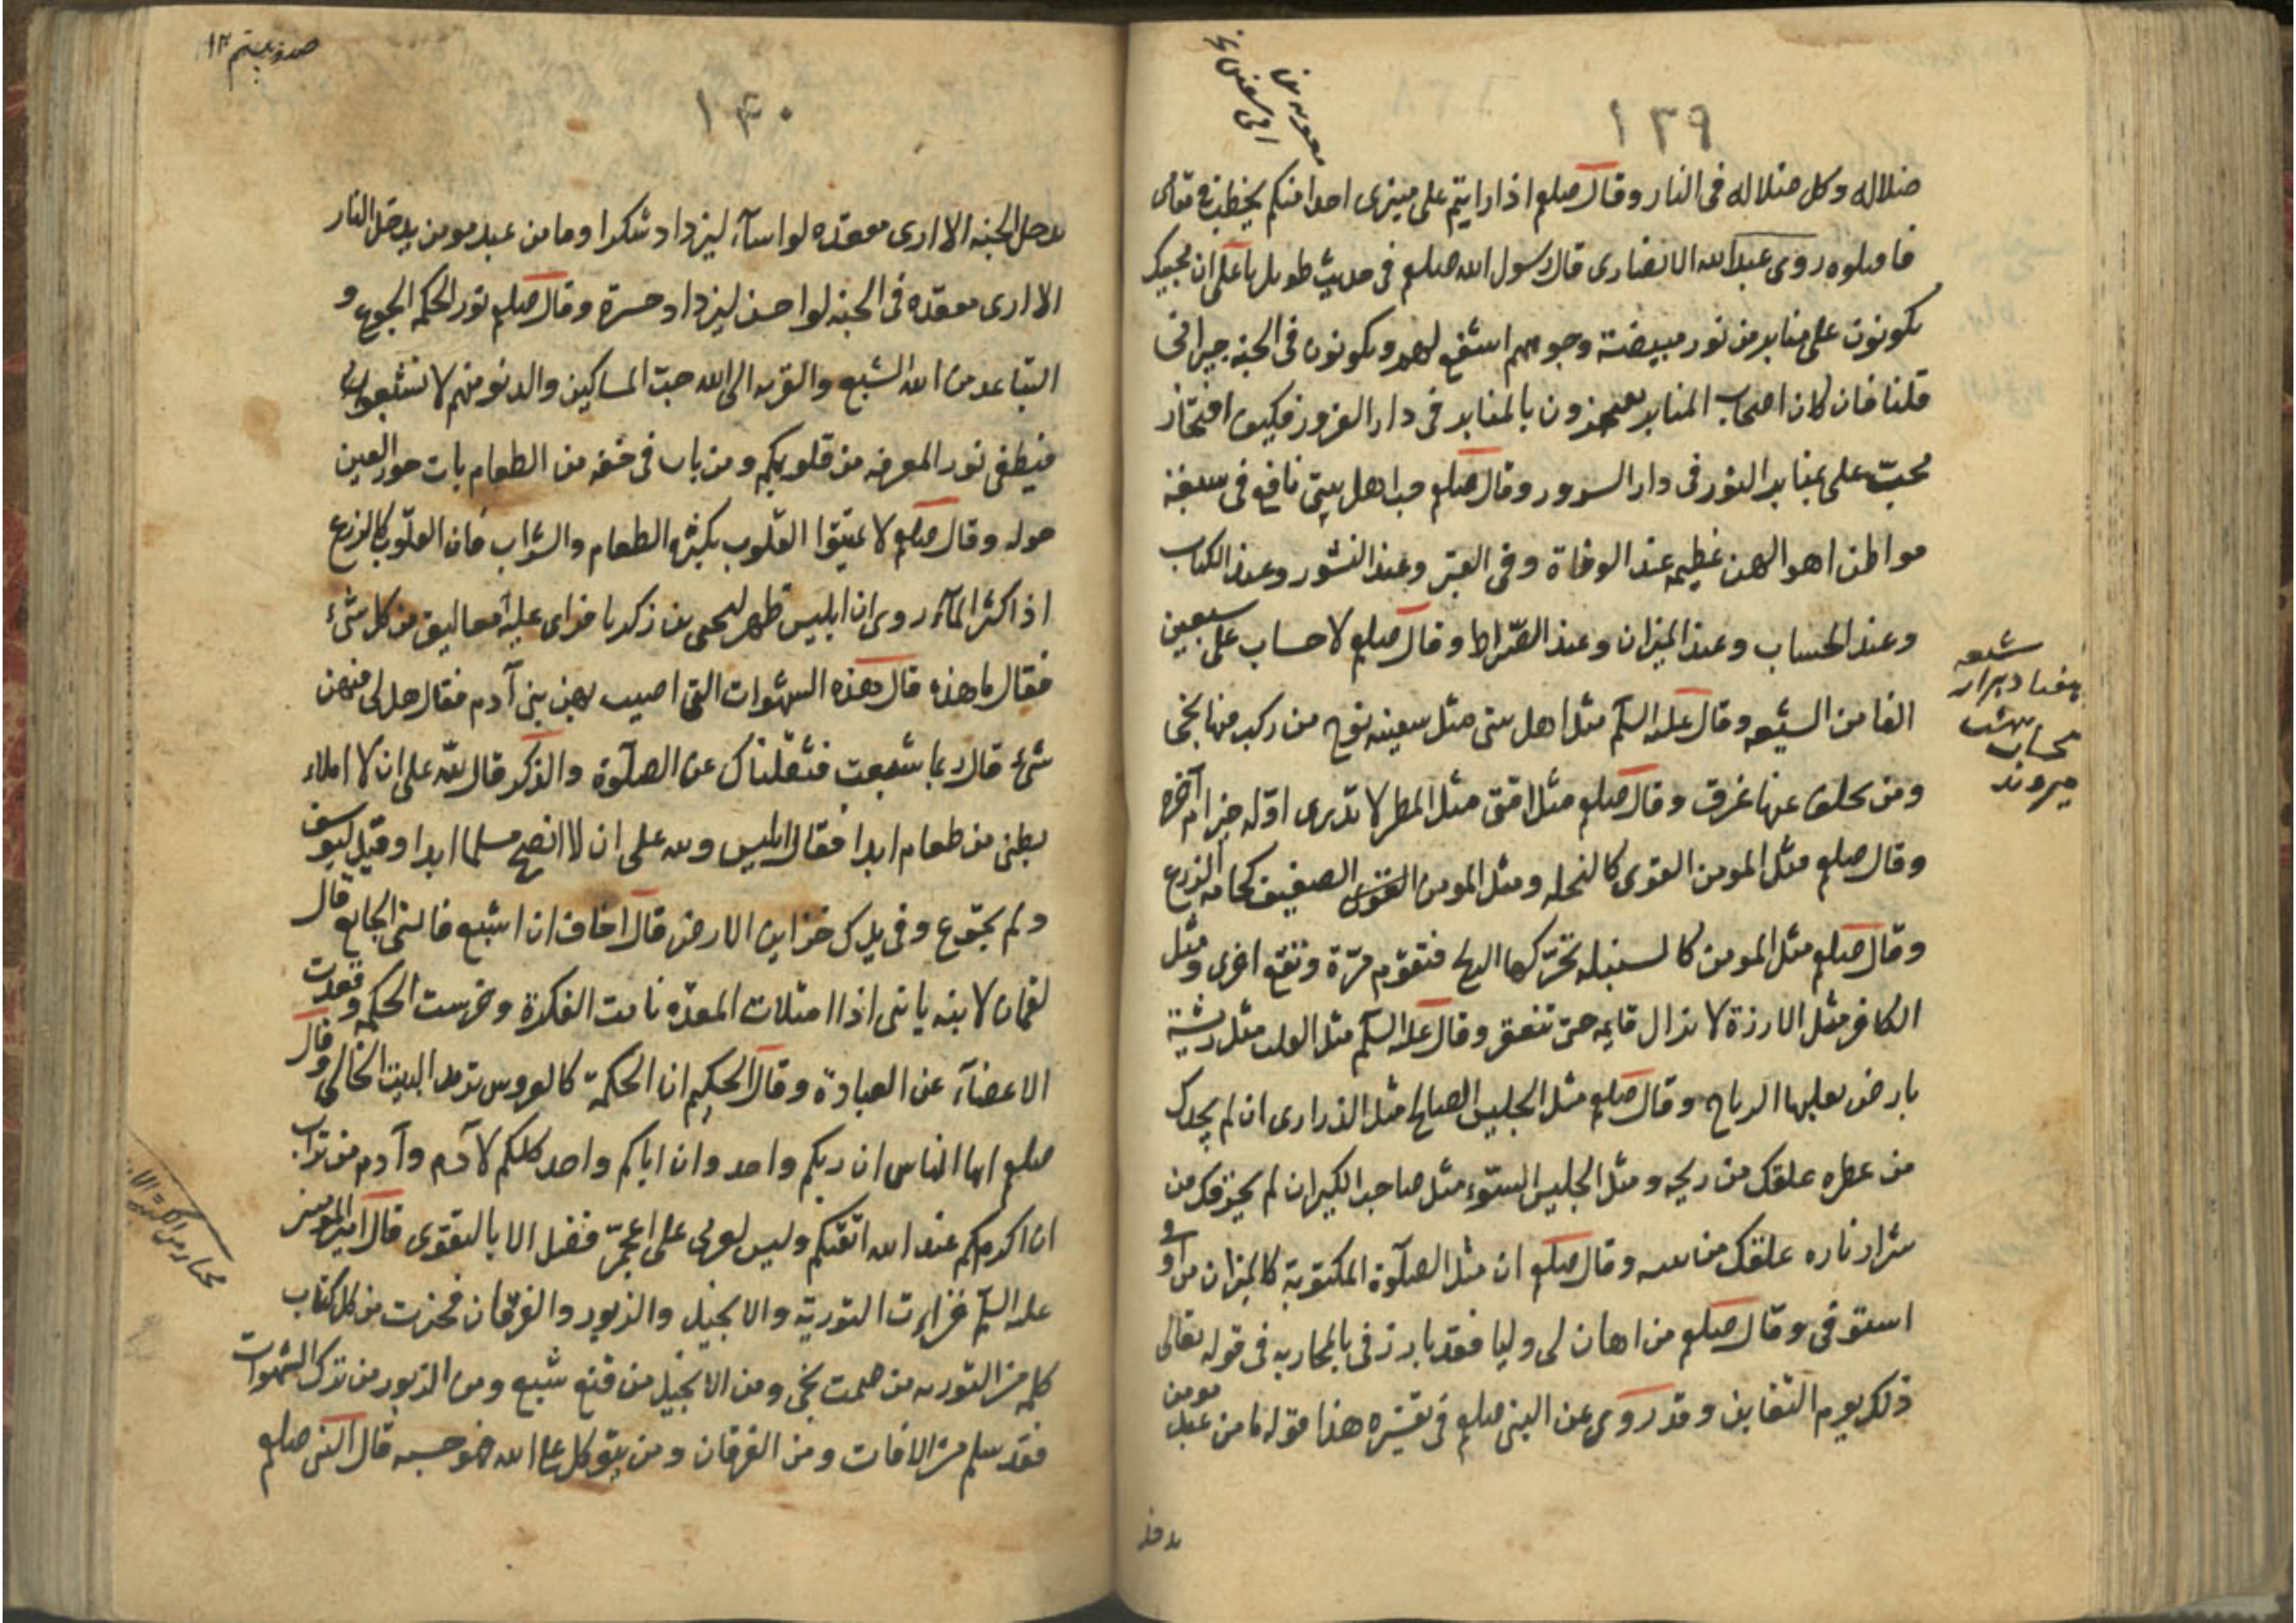 ١٣٩
ضلاله وكل ضلاله فى النار وقال صلعم اذا رايتم على منبرى احدا منكم يخطب
فا روى عبدالله الانصارى قال رسول الله صلعم فى حديث طويل يا على ان محبيك
يكونون على منابر من نور مبيضة وجوههم اشفع لهم ويكونون فى الجنه جيرانى
قلنا فان كان اصحاب المنابر بالمنابر فى دار الغرور فكيف افتخار
محبّ على بمنابر النور فى دار السرور وقال صلعم حب اهل بيتى نافع فى سبعة
مواطن اهوالهن عظيمه عند الوفاة وفى القبر وعند النشور وعند الكتاب
وعند الحساب وعند الميزان وعند الصّراط وقال صلعم لا حساب على سبعين
الفا من الشيعه وقال عليه السلم مثل اهل بيتى مثل سفينه نوح من ركب فيها نجى
ومن تخلف عنها غرق وقال صلعم مثل امتى مثل المطر لا يدرى اوّله خير ام آخره
وقال صلعم مثل المومن القوى كالنخله ومثل المومن الضعيف كخامه الزرع
وقال صلعم مثل المومن كالسنبله تحرّكها الريح فتقوم مرّة وتقع اخرى ومثل
الكافر مثل الارزة لا تزال قايمه حتى تنقعر وقال عليه السلم مثل القلب مثل ريشة
بارض تقلبها الرياح وقال صلعم مثل الجليس الصالح مثل الدارى ان لم يجدك
من عطره علقك من ريحه ومثل الجليس السّوء مثل صاحب الكير ان لم يحرقك من
شرار ناره علقك من نتنه وقال صلعم ان مثل الصلوة المكتوبة كالميزان من اوفى
استوفى وقال صلعم من اهان لى وليا فقد بارزنى بالمحاربه فى قوله تعالى
ذلك يوم التغابن وقد روى عن النبى صلعم فى تفسيره هذا قوله ما من عبد مومن
شيعه
هفتاد هزار
بحساب بهشت
ميروند
يدخل
١٤٠
يدخل الجنه الا ارى مقعده لو اسآء ليزداد شكرا وما من عبد مومن يدخل النار
الا ارى مقعده فى الجنه لو احسن ليزداد حسرة وقال صلعم نور الحكمه الجوع و
التباعد من الله الشبع والقربه الى الله حبّ المساكين والدنو منهم لا تشبعوا
فيطفى نور المعرفه من قلوبكم ومن بات فى خفه من الطعام بات حور العين
حوله وقال صلعم لا تميتوا القلوب بكثره الطعام والشراب فان القلوب كالزرع
اذا كثر المآء روى ان ابليس ظهر ليحيى بن زكريا فراى عليه معاليق من كل شىء
فقال ما هذه قال هذه الشهوات التى اصيب بهن بنى آدم فقال هل لى فيهن
شىء قال ربما شبعت فثقلناك عن الصلوة والذكر قال لله على ان لا املاء
بطنى من طعام ابدا فقال ابليس ولله على ان لا انصح مسلما ابدا وقيل ليوسف
ولم تجوع وفى يدك خزاين الارض قال اخاف ان اشبع فانسى الجايع قال
لقمان لابنه يا بنى اذا امتلات المعده نامت الفكرة وخرست الحكمه وقعدت
الاعضآء عن العبادة وقال الحكيم ان الحكمة كالعروس تريد البيت الخالى وقال
صلعم ايها الناس ان ربكم واحد وان اباكم واحد كلكم لآدم وآدم من تراب
ان اكرمكم عند الله اتقيكم وليس لعربى على اعجمىّ فضل الا بالتقوى قال امير المومنين
عليه السلم قراءت التورية والانجيل والزبور والفرقان فخرت من كل كتاب
كلمه من التوريه من صمت نجى ومن الانجيل من قنع شبع ومن الزبور من ترك الشهوات
فقد سلم من الافات ومن الفرقان ومن يتوكل على الله فهو حسبه قال النبى صلعم